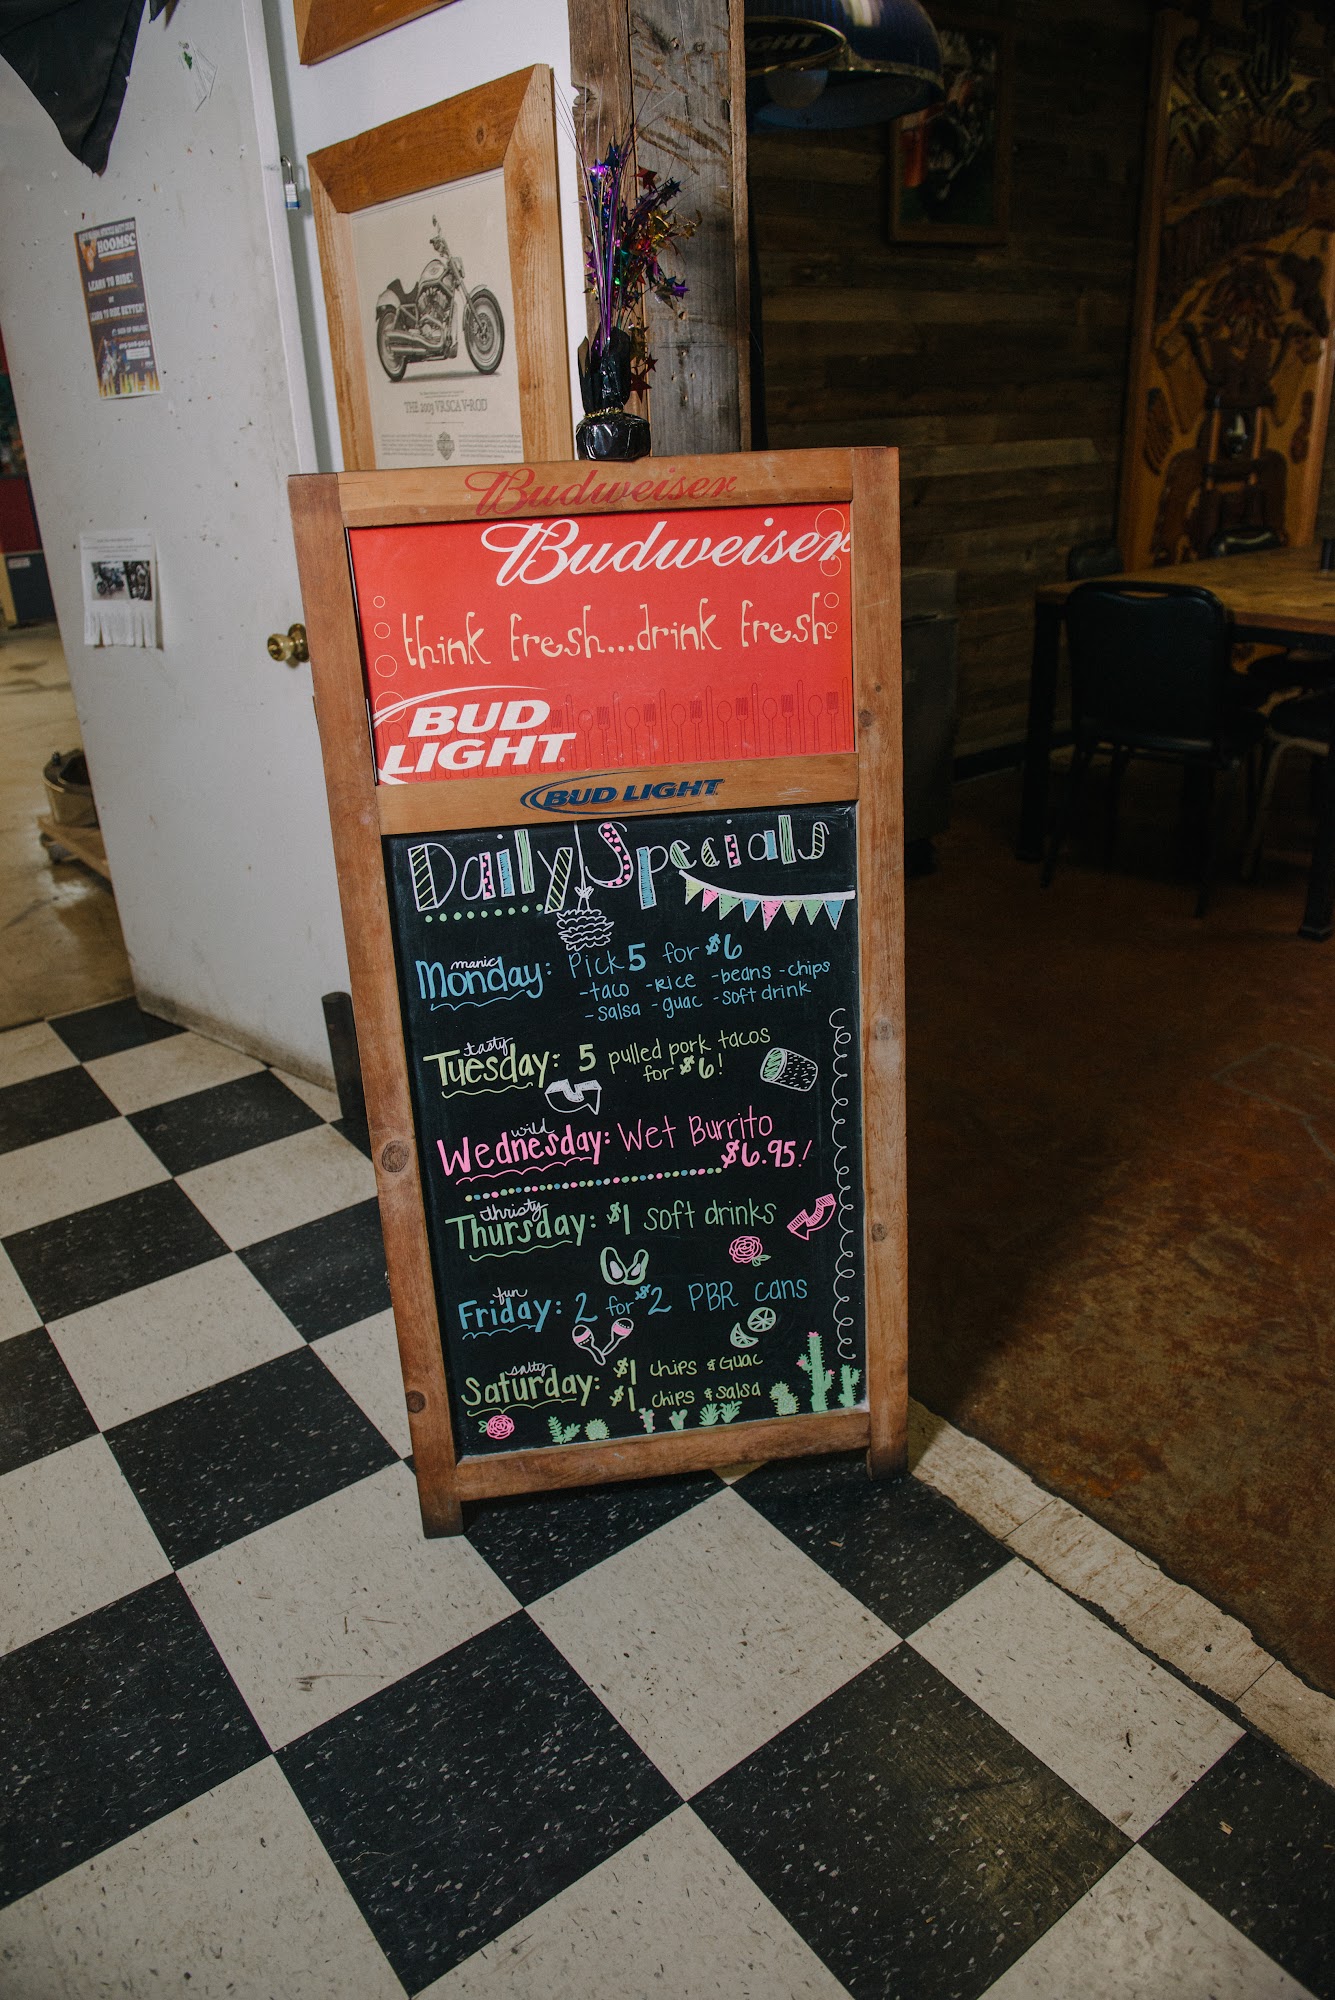 LIGHT
BOOMSC
LEARN TO RIDE!
or
LEARN TO RIDE BETTER!
SIGN UP ONLINE!
THE 2003 VRSCA V-ROD
Budweiser
Budweiser
think fresh...drink fresh
BUD
LIGHT
BUD LIGHT
Daily Specials
manic
Monday: Pick 5 for $6
-taco -rice -beans -chips
-salsa -guac -soft drink
tasty
Tuesday: 5 pulled pork tacos
for $6!
wild
Wednesday: Wet Burrito
$6.95!
thristy
Thursday: $1 soft drinks
fun
Friday: 2 for $2 PBR cans
salty
Saturday: $1 chips & Guac
$1 chips & salsa